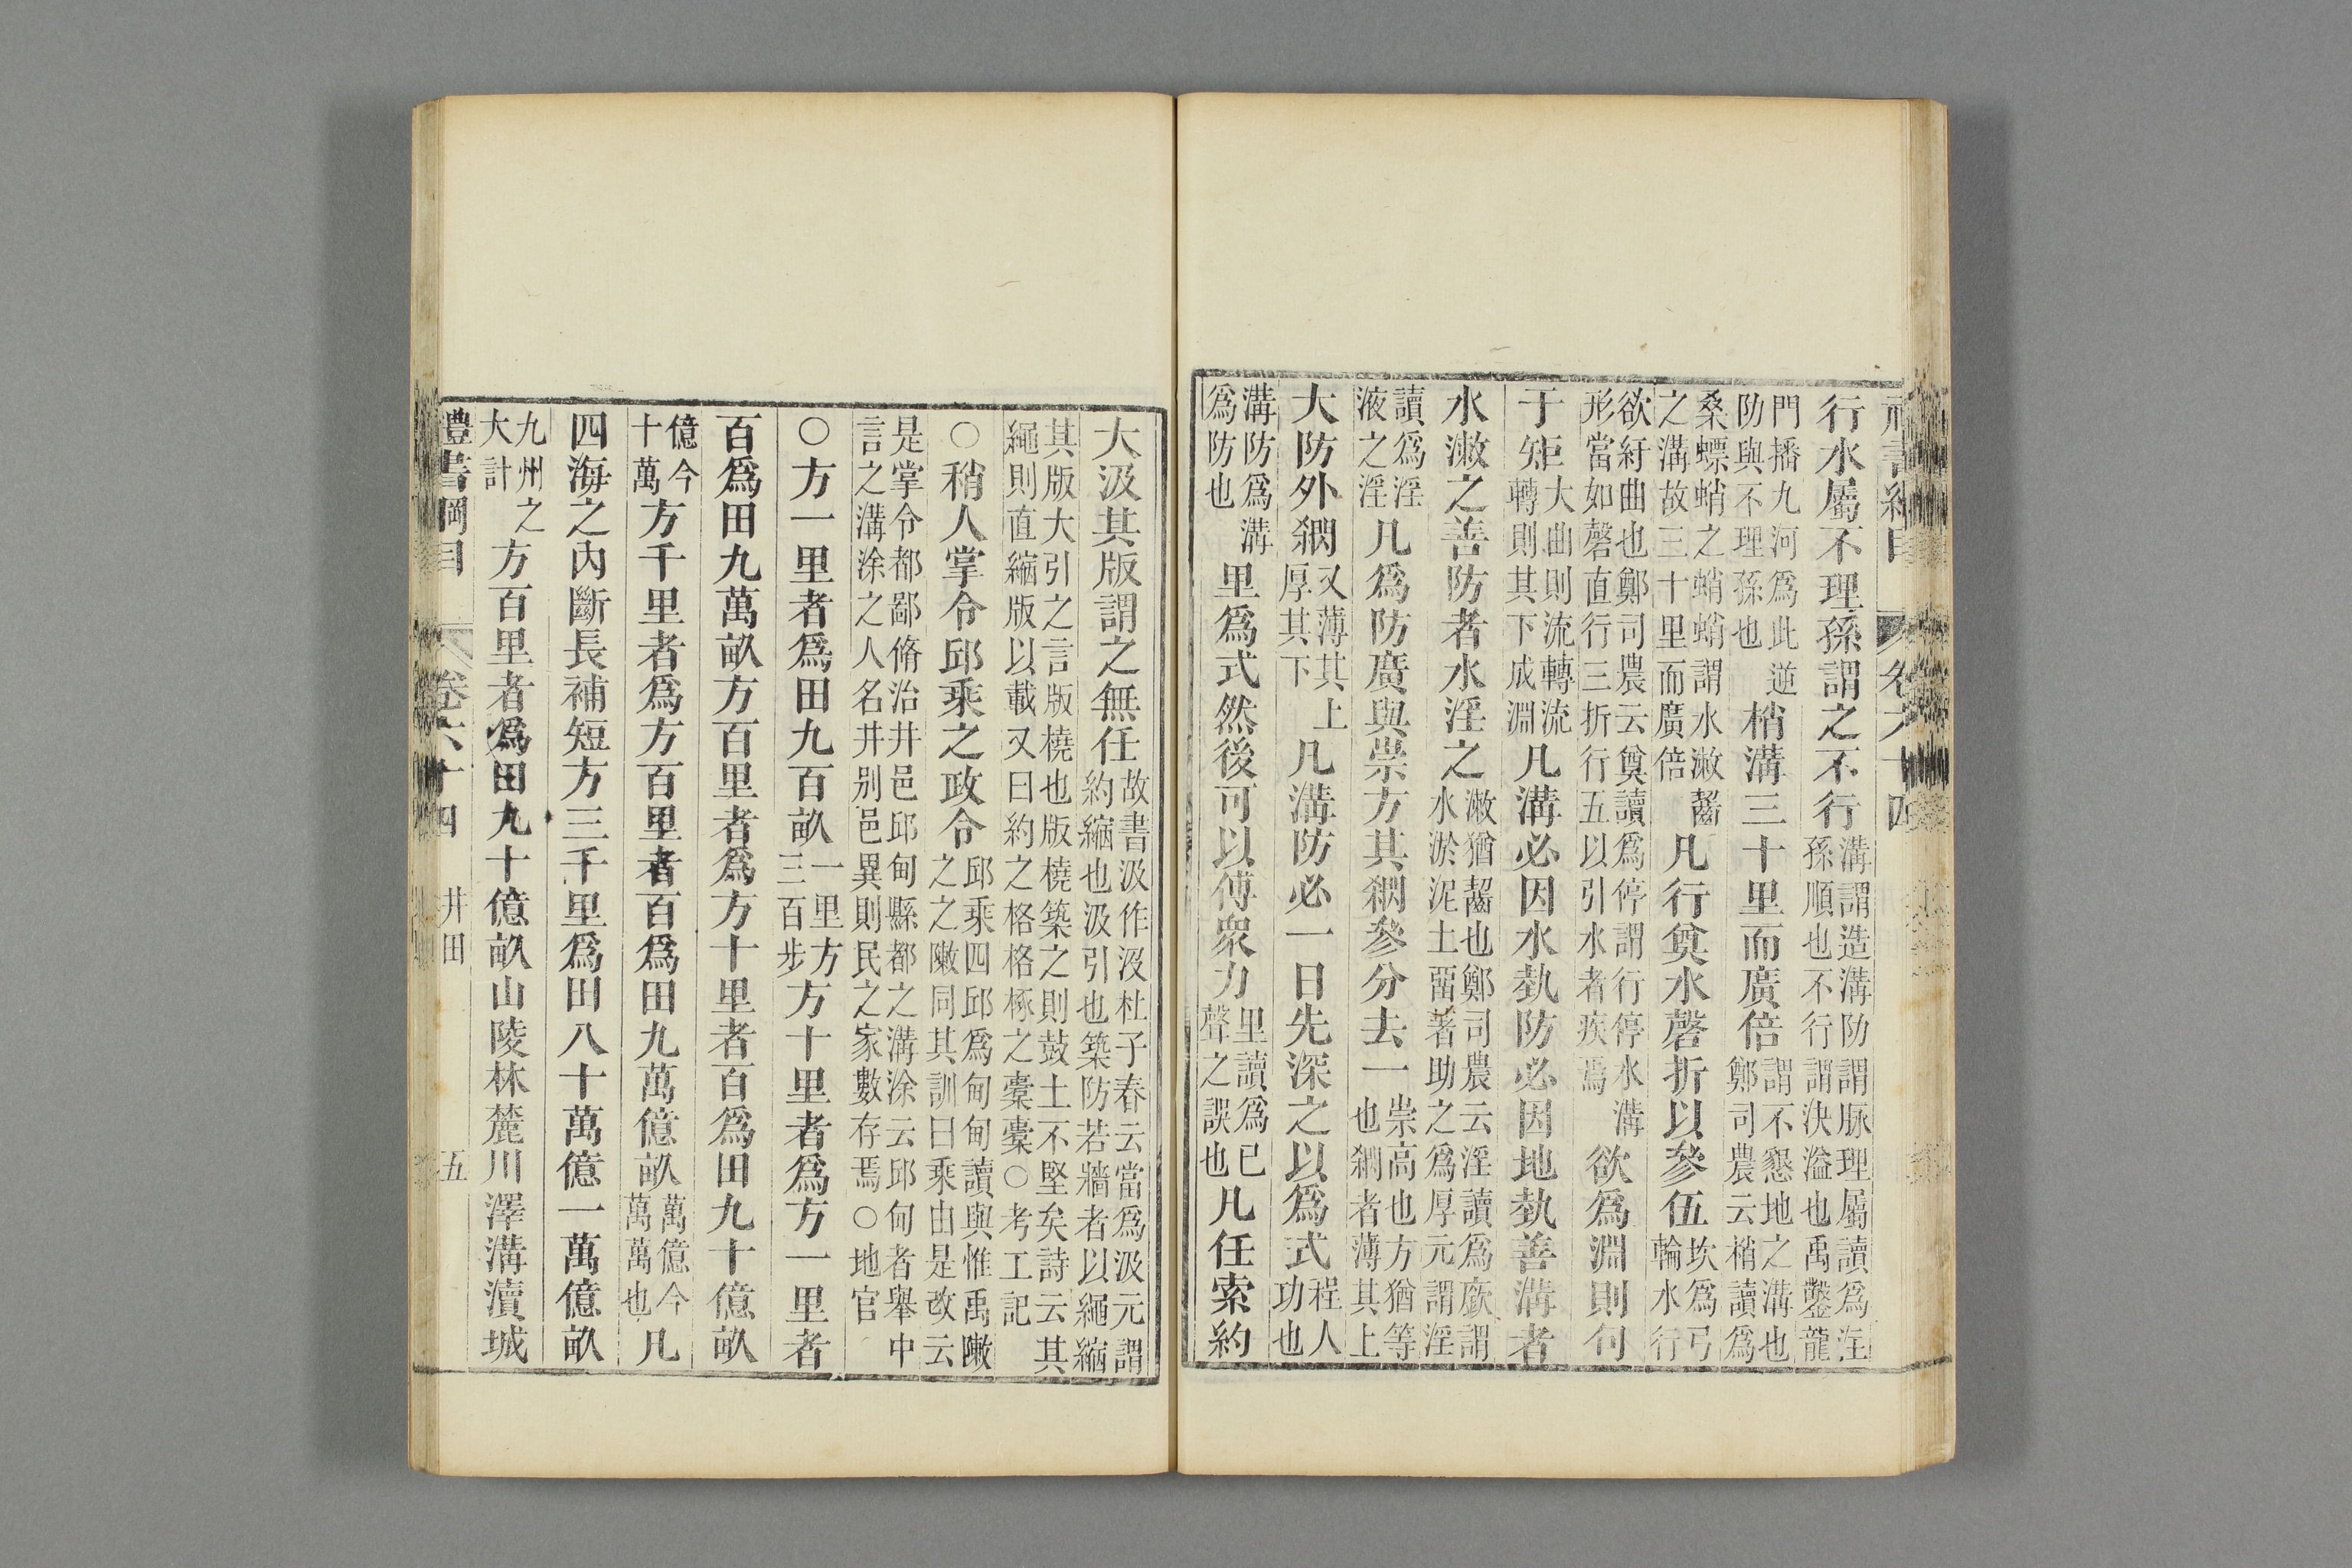 禮書綱目 卷六十四
行水屬不理孫謂之不行溝謂造溝防謂脉理屬讀爲注孫順也不行謂決溢也禹鑿龍
門播九河爲此逆防與不理孫也梢溝三十里而廣倍謂不懇地之溝也鄭司農云梢讀爲
桑螵蛸之蛸蛸謂水漱齧之溝故三十里而廣倍凡行奠水磬折以參伍坎爲弓輪水行
欲紆曲也鄭司農云奠讀爲停謂行停水溝形當如磬直行三折行五以引水者疾焉欲爲淵則句
于矩大曲則流轉流轉則其下成淵凡溝必因水埶防必因地埶善溝者
水漱之善防者水淫之漱猶齧也鄭司農云淫讀爲廞謂水淤泥土畱著助之爲厚元謂淫
讀爲淫液之淫凡爲防廣與崇方其閷參分去一崇高也方猶等也閷者薄其上
大防外閷又薄其上厚其下凡溝防必一日先深之以爲式程人功也
溝防爲溝爲防也里爲式然後可以傅衆力里讀爲已聲之誤也凡任索約
大汲其版謂之無任故書汲作汳杜子春云當爲汲元謂約縮也汲引也築防若牆者以繩縮
其版大引之言版橈也版橈築之則鼓土不堅矣詩云其繩則直縮版以載又曰約之格格椓之橐橐○考工記
○稍人掌令邱乘之政令邱乘四邱爲甸甸讀與惟禹敶之之敶同其訓曰乘由是改云
是掌令都鄙脩治井邑邱甸縣都之溝涂云邱甸者舉中言之溝涂之人名井别邑異則民之家數存焉○地官
○方一里者爲田九百畝一里方三百步方十里者爲方一里者
百爲田九萬畝方百里者爲方十里者百爲田九十億畝
億今十萬方千里者爲方百里者百爲田九萬億畝萬億今萬萬也凡
四海之內斷長補短方三千里爲田八十萬億一萬億畝
九州之大計方百里者爲田九十億畝山陵林麓川澤溝瀆城
禮書綱目 卷六十四 井田 五